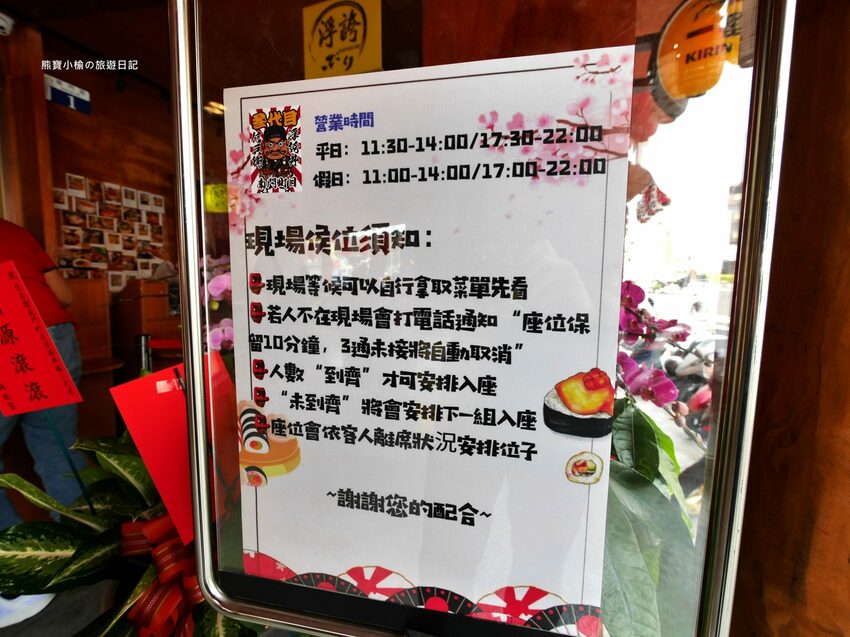 熊寶小榆の旅遊日記
浮誇
KIRIN
1
參代目
南門町
營業時間
平日：11:30-14:00/17:30-22:00
假日：11:00-14:00/17:00-22:00
現場侯位須知：
現場等候可以自行拿取菜單先看
若人不在現場會打電話通知“座位保
留10分鐘，3通未接將自動取消”
人數“到齊”才可安排入座
“未到齊”將會安排下一組入座
座位會依客人離席狀況安排位子
~謝謝您的配合~
源滾滾